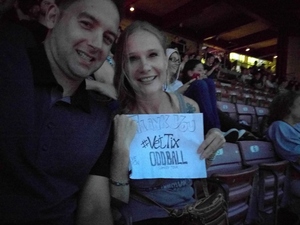 THANK YOU
#VETTIX
ODDBALL